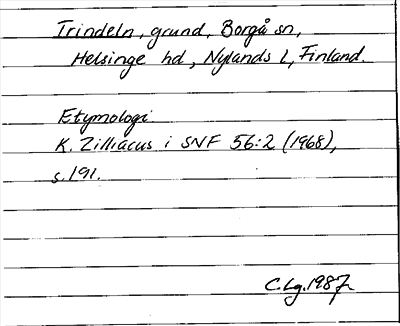 Trindeln, grund, Borgå sn,
Helsinge hd, Nylands l, Finland.
Etymologi
K. Zilliacus i SNF 56:2 (1968),
s.191.
C.Lg.1987